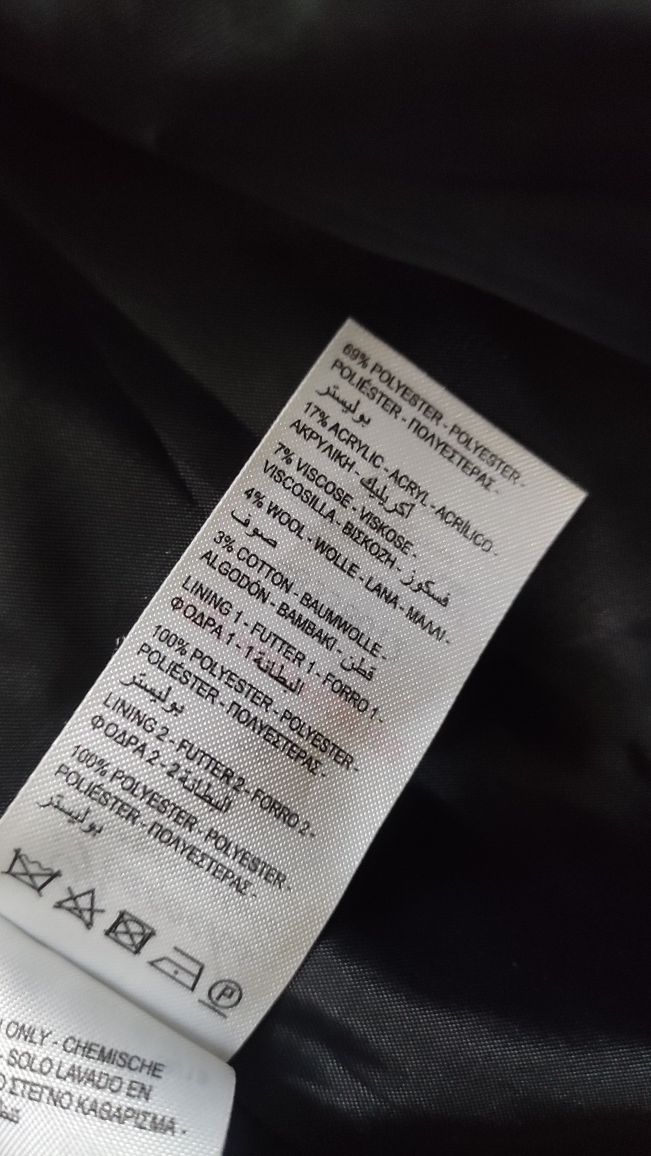 69% POLYESTER - POLYESTER -
POLIÉSTER - ΠΟΛΥΕΣΤΕΡΑΣ -
بوليستر
17% ACRYLIC - ACRYL - ACRÍLICO -
ΑΚΡΥΛΙΚΗ - أكريليك
7% VISCOSE - VISKOSE -
VISCOSILLA - ΒΙΣΚΟΖΗ - فسكوز
4% WOOL - WOLLE - LANA - ΜΑΛΛΙ -
صوف
3% COTTON - BAUMWOLLE -
ALGODÓN - ΒΑΜΒΑΚΙ - قطن
LINING 1 - FUTTER 1 - FORRO 1 -
ΦΟΔΡΑ 1 - البطانة 1
100% POLYESTER - POLYESTER -
POLIÉSTER - ΠΟΛΥΕΣΤΕΡΑΣ -
بوليستر
LINING 2 - FUTTER 2 - FORRO 2 -
ΦΟΔΡΑ 2 - البطانة 2
100% POLYESTER - POLYESTER -
POLIÉSTER - ΠΟΛΥΕΣΤΕΡΑΣ -
بوليستر
P
ONLY - CHEMISCHE
- SOLO LAVADO EN
ΣΤΕΓΝΟ ΚΑΘΑΡΙΣΜΑ -